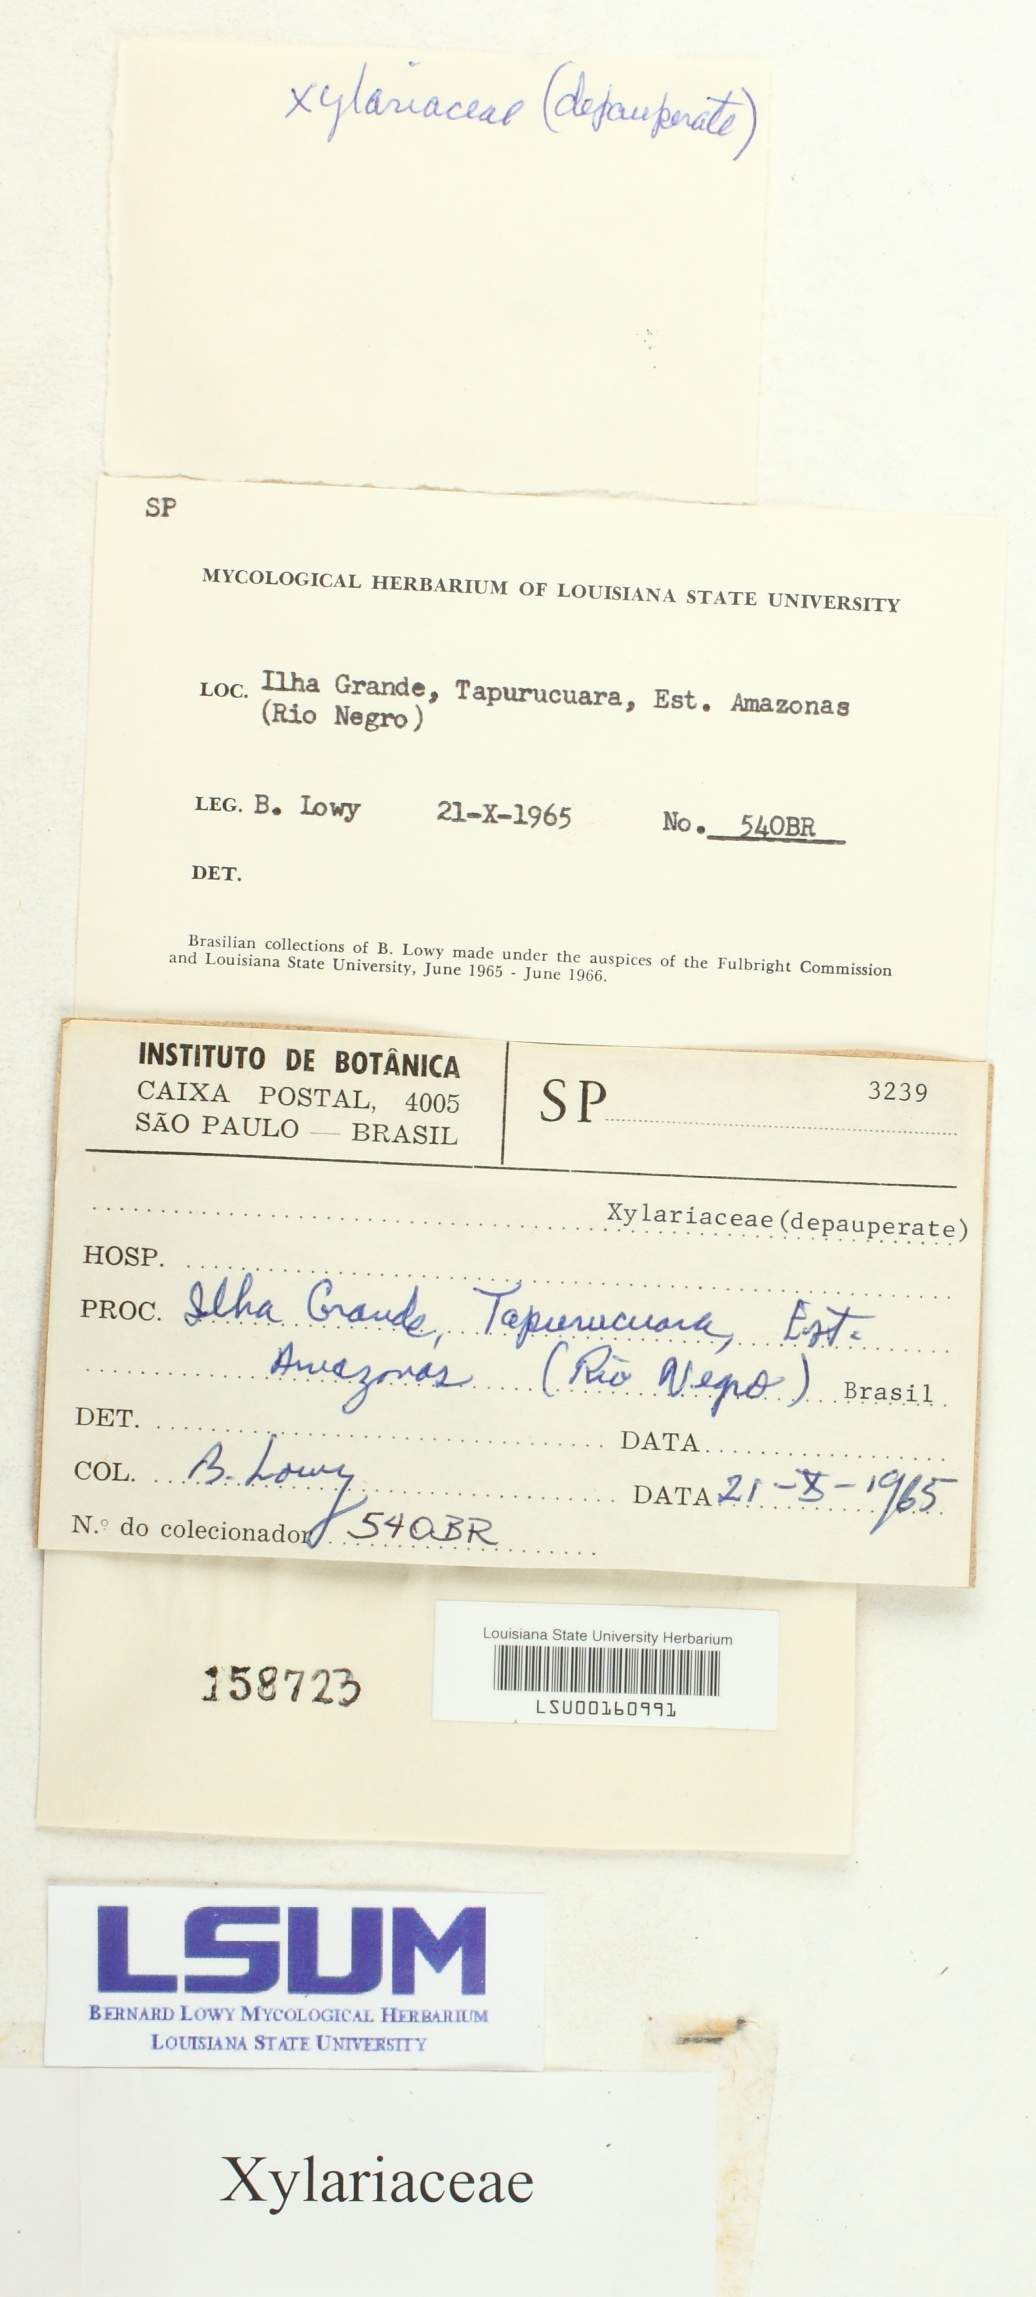 Xylariaceae (depauperate)
SP
MYCOLOGICAL HERBARIUM OF LOUISIANA STATE UNIVERSITY
LOC. Ilha Grande, Tapurucuara, Est. Amazonas
(Rio Negro)
LEG. B. Lowy 21-X-1965 No. 540BR
DET.
Brasilian collections of B. Lowy made under the auspices of the Fulbright Commission
and Louisiana State University, June 1965 - June 1966.
INSTITUTO DE BOTÂNICA
CAIXA POSTAL, 4005
SÃO PAULO — BRASIL
SP 3239
Xylariaceae (depauperate)
HOSP.
PROC. Ilha Grande, Tapurucuara, Est.
Amazonas (Rio Negro) Brasil
DET. DATA
COL. B. Lowy DATA 21-X-1965
N.º do colecionador 540BR
Louisiana State University Herbarium
158723
LSU00160991
LSUM
BERNARD LOWY MYCOLOGICAL HERBARIUM
LOUISIANA STATE UNIVERSITY
Xylariaceae